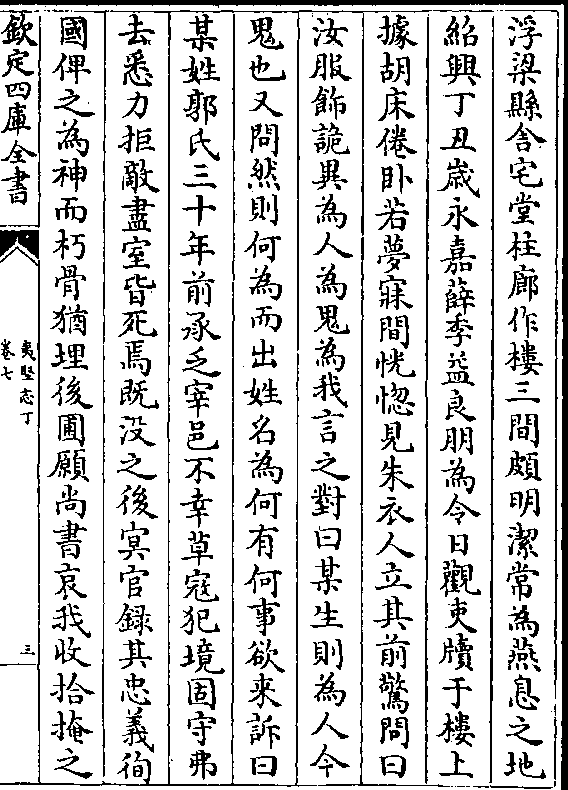 浮梁縣舍宅堂柱廊作樓三間頗明潔常為燕息之地
紹興丁丑歳永嘉薛季益良朋為令日觀吏牘于樓上
據胡床倦卧若夢寐間恍惚見朱衣人立其前驚問曰
汝服飾詭異為人為鬼為我言之對曰某生則為人今
鬼也又問然則何為而出姓名為何有何事欲来訴曰
某姓郭氏三十年前承乏宰邑不幸草寇犯境固守弗
去悉力拒敵盡室皆死焉既没之後冥官録其忠義徇
國俾之為神而朽骨猶埋後圃願尚書哀我收拾掩之
欽定四庫全書
夷堅志丁
卷七
三